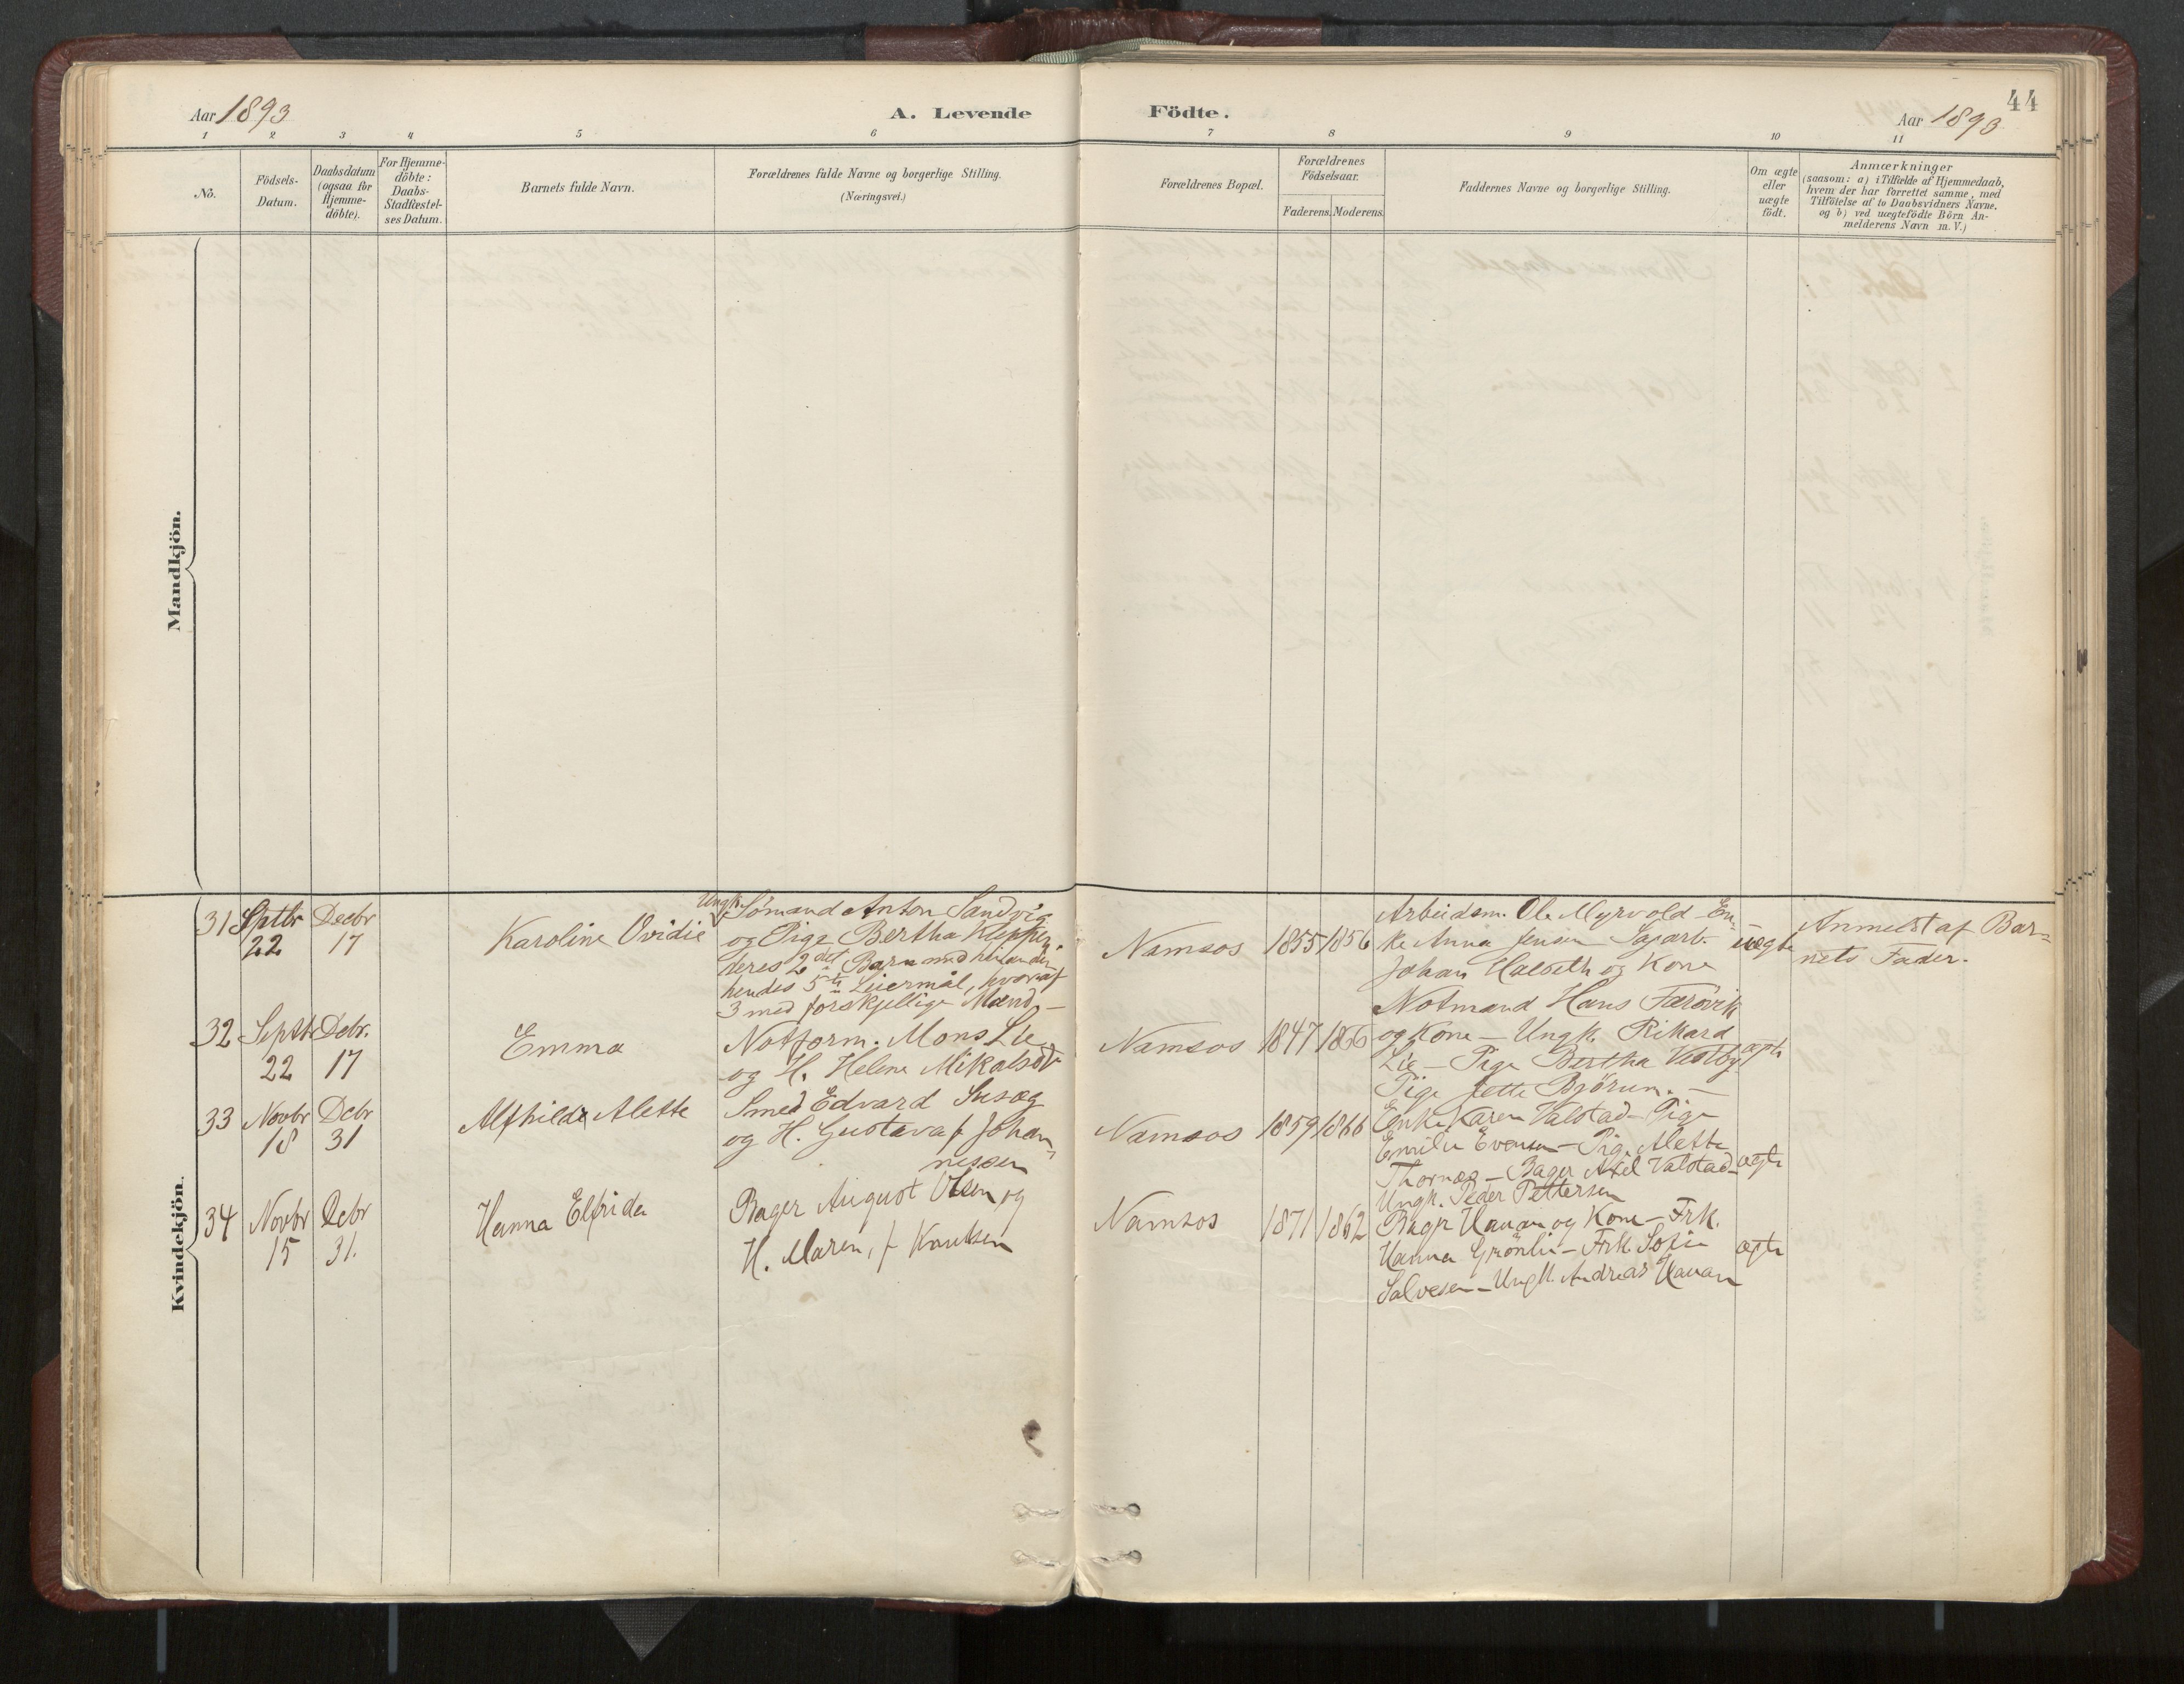 44
Aar 1893
A. Levende Födte.
Aar 1893
1 2 3 4 5 6 7 8 9 10 11
No.
Födsels-
Datum.
Daabsdatum
(ogsaa for
Hjemme-
döbte).
For Hjemme-
döbte:
Daabs-
Stadfæstel-
ses Datum.
Barnets fulde Navn.
Forældrenes fulde Navne og borgerlige Stilling.
(Næringsvei.)
Forældrenes Bopæl.
Forældrenes
Födselsaar.
Faderens. Moderens.
Faddernes Navne og borgerlige Stilling.
Om ægte
eller
uægte
födt.
Anmærkninger
(saasom: a) i Tilfælde af Hjemmedaab,
hvem der har forrettet samme, med
Tilföielse af to Daabsvidners Navne.
og b) ved uægtefödte Börn An-
melderens Navn m.V.)
Mandkjön.
Kvindekjön.
31 Sptbr
22
Decbr
17
Karoline Ovidie
Ungk. Sömand Anton Sandvig
og Pige Bertha Kleppen.
deres 2det Barn med hinanden
hendes 5te Leiermål, hvoraf
3 med forskjellige Mænd.—
Namsos
1855 1856
Arbeidsm. Ole Myrvold – En-
ke Anna Jensen – Sagarb.
Johan Halseth og Kone
uægte
Anmeldt af Bar-
nets Fader.
32 Septbr
22
Debr.
17
Emma
Notform. Mons Lie
og H. Helene Mikalsdr
Namsos
1847 1866
Notmand Hans Færövik
og Kone – Ungk. Rikard
Lie – Pige Bertha Vestby
Pige Jette Björum.—
ægte
33 Novbr
18
Debr
31
Alfhilde Alette
Smed Edvard Susæg
og H. Gustava f. Johan-
nessen
Namsos
1859 1866
Enke Karen Valstad – Pige
Emilie Evensen – Pige Alette
Thornæs – Bager Axel Valstad –
Ungk. Peder Pettersen
ægte
34 Novbr
15
Debr
31.
Hanna Elfrida
Bager August Olsen og
H. Maren, f Knutsen
Namsos
1871 1862
Bager Hauan og Kone – Frk.
Hanna Grönli – Frk. Sofie
Salvesen – Ungk. Andreas Hauan
ægte